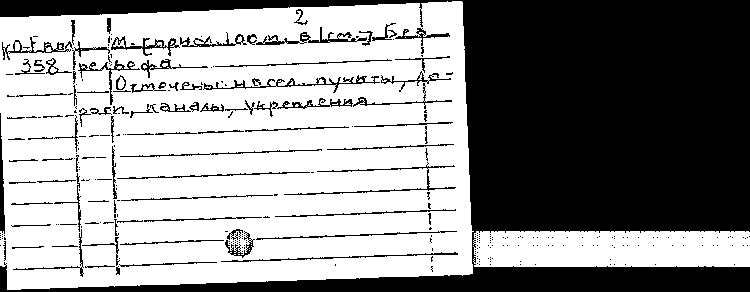 2
КО-Евр./ М-[присл. 100 т. в 1 см.] Без
358 рельефа.
Отмечены: насел. пункты, до-
роги, каналы, укрепления.